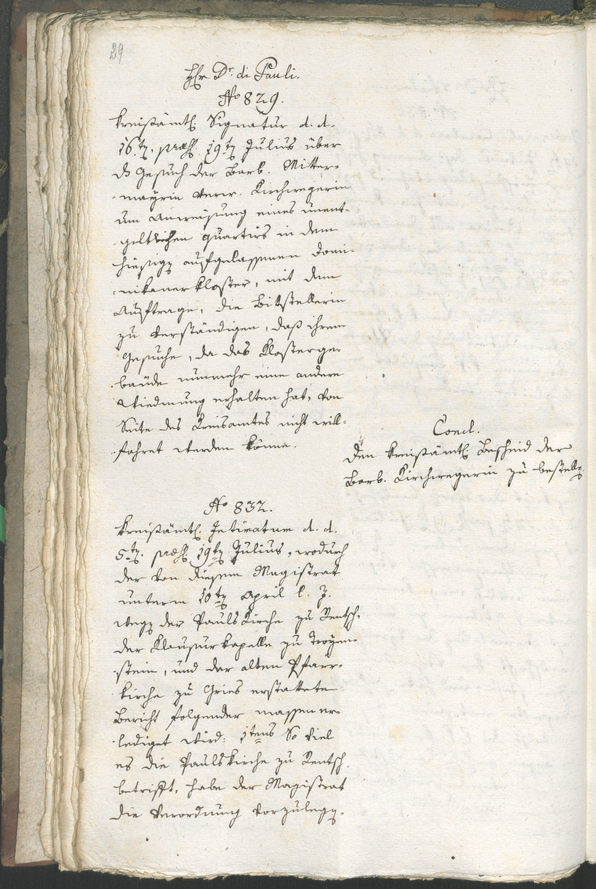 29
Hr. Dr. di Pauli.
No 829.
Kreisämtl. Signatur d. d.
16t. præs. 19t. Julius über
ds Gesuch der Barb. Mitter-
mayrin verw. Kirchregerin
um Anweisung eines unent-
geltlichen Quartirs in dem
hiesigen aufgelassenen Domi-
nikanerkloster, mit dem
Auftrage, die Bittstellerin
zu verständigen, daß ihrem
Gesuche, da das Klosterge-
bäude nunmehr eine andere
Widmung erhalten hat, von
Seite des Kreisamtes nicht will-
fahret werden könne.
Concl.
Den kreisämtl. Bescheid der
Barb. Kirchregerin zu bestellen
No 832.
Kreisämtl. Intimatum d. d.
5t. præs. 19t. Julius, wodurch
der von diesem Magistrat
unterm 10t. April l. J.
wegen der Pauls Kirche zu Rentsch,
der Klausurkapelle zu Troyen-
stein, und der alten Pfarr-
kirche zu Gries erstattete
Bericht folgender massen er-
lediget wird: 1tens So viel
es die Paulskirche zu Rentsch
betrifft, habe der Magistrat
die Verordnung vorzulegen,